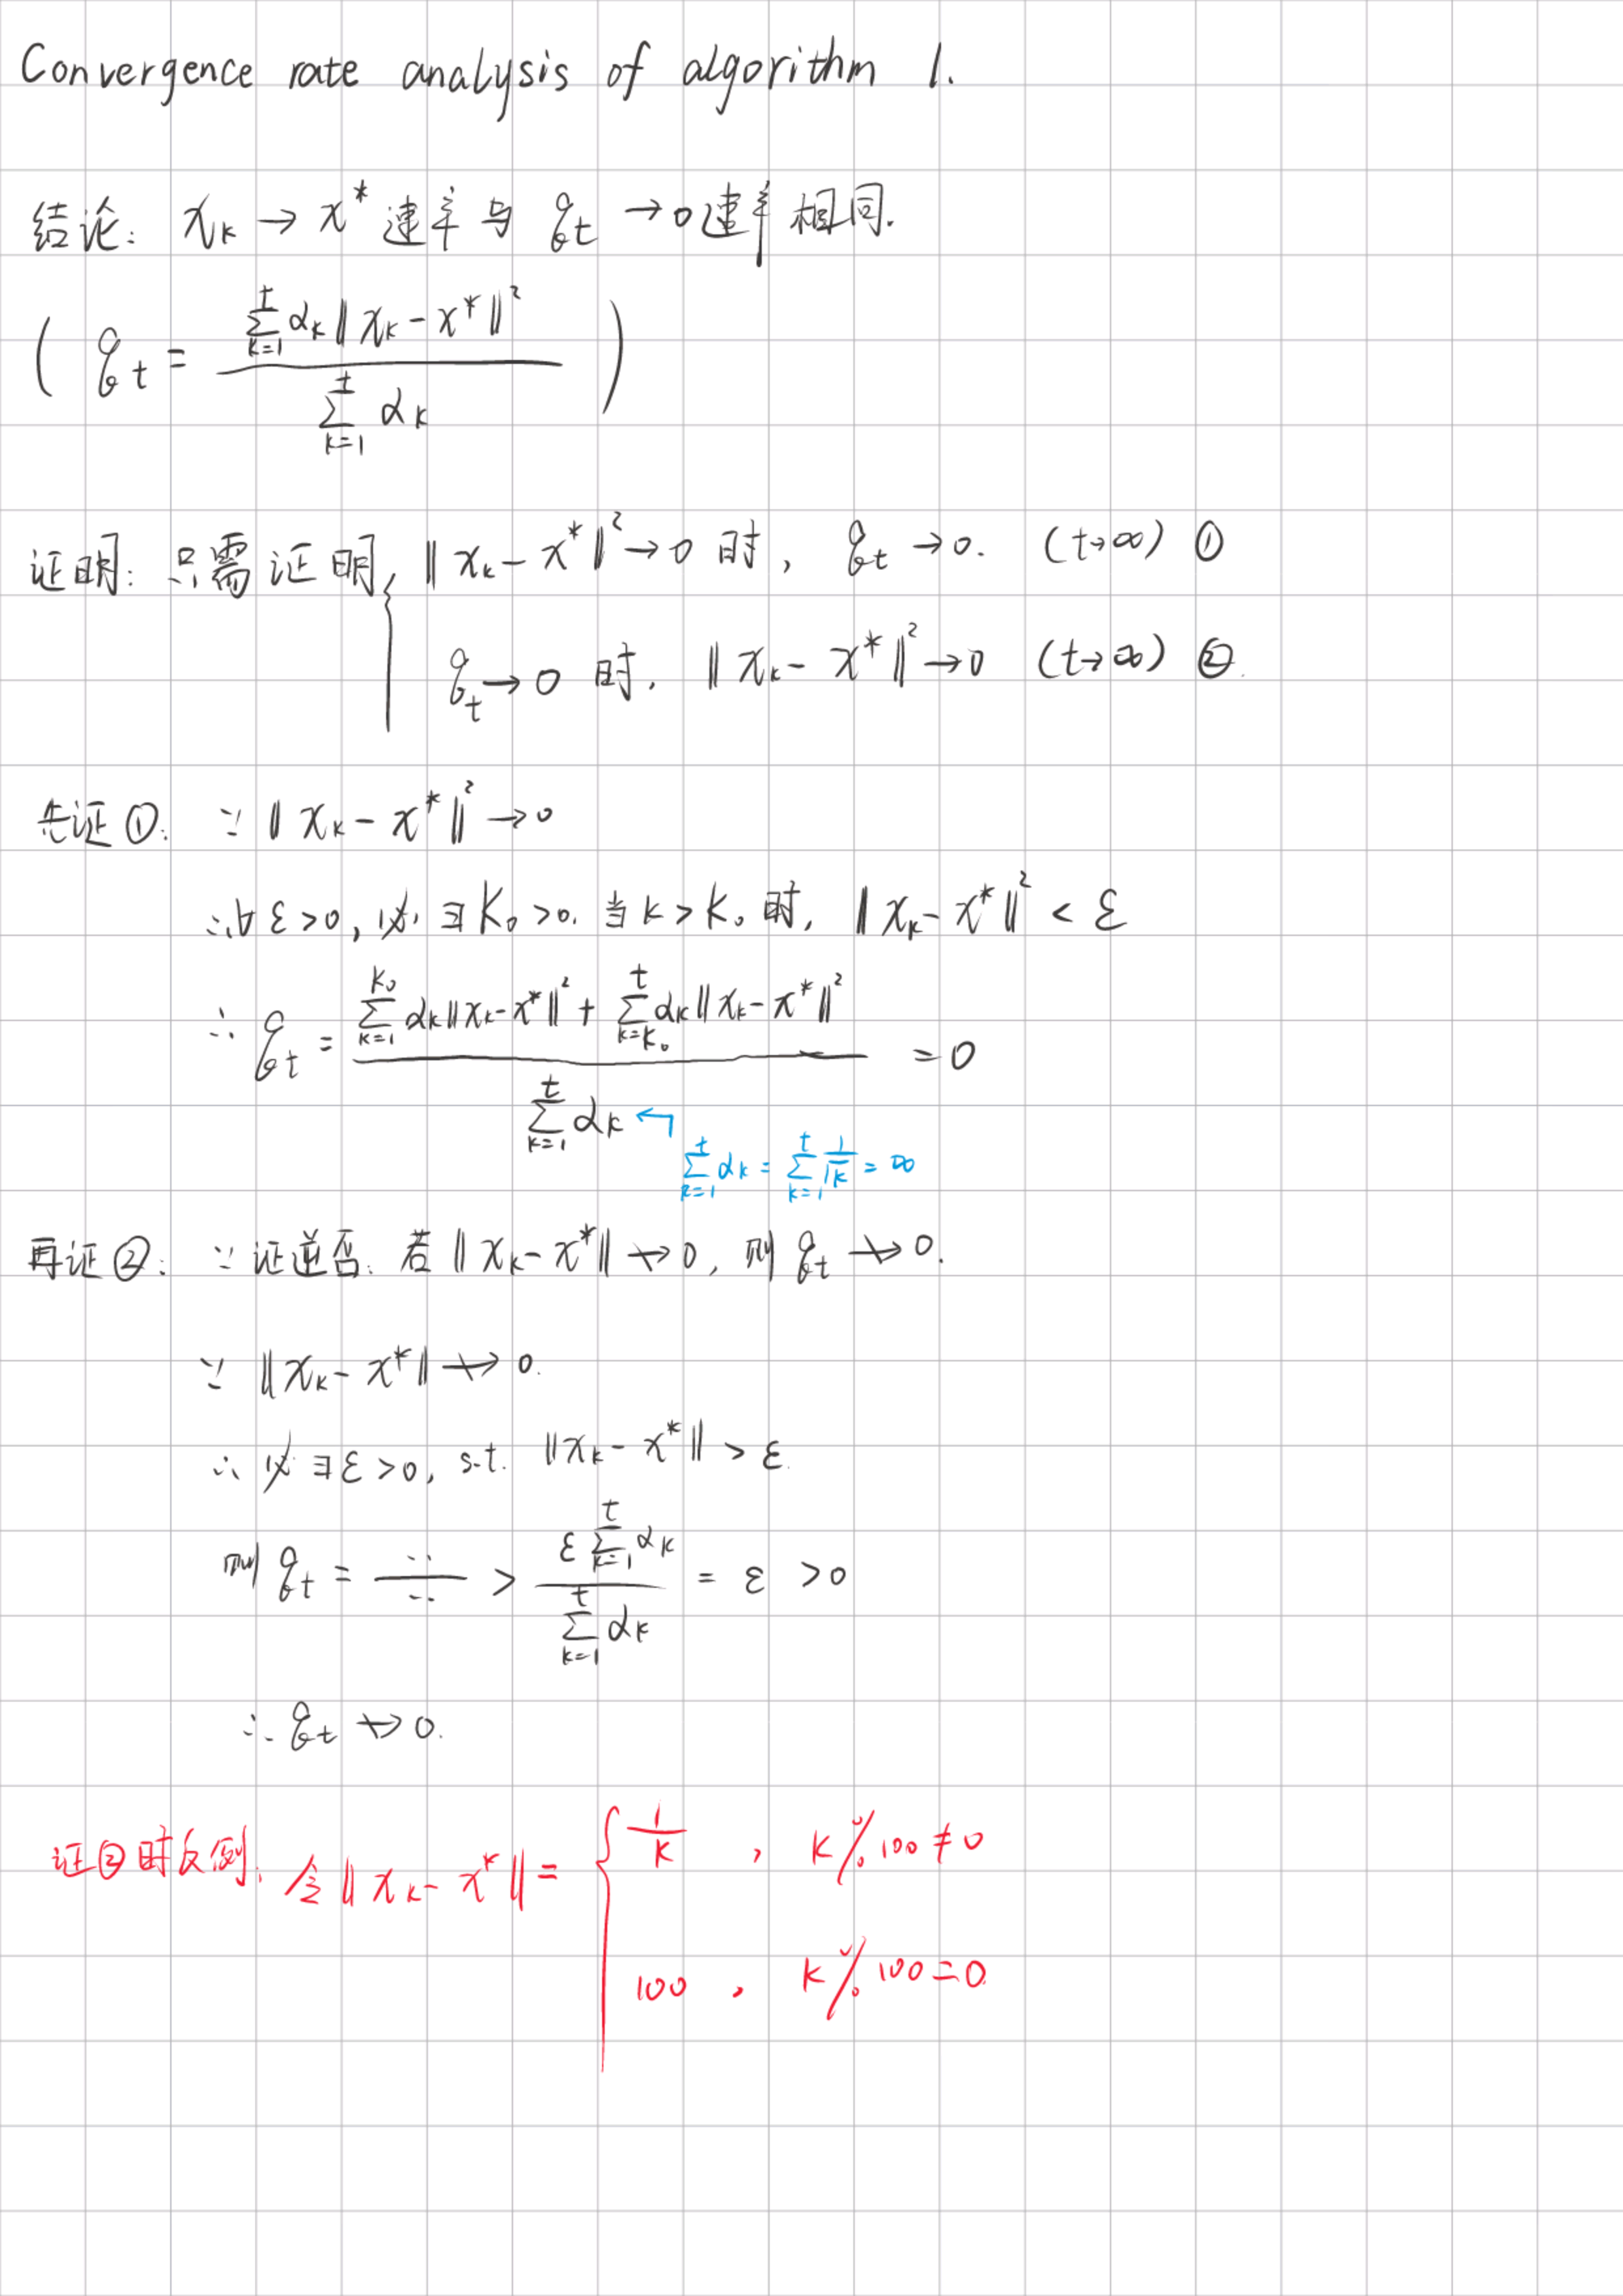 Convergence rate analysis of algorithm 1.
结论: x_k → x* 速率与 q_t → 0速率相同.
( q_t = \frac{\sum_{k=1}^{t} α_k ‖x_k - x*‖²}{\sum_{k=1}^{t} α_k} )
证明: 只需证明, { ‖x_k - x*‖² → 0 时, q_t → 0. (t→∞) ①
q_t → 0 时, ‖x_k - x*‖² → 0 (t→∞) ②.
先证①: ∵ ‖x_k - x*‖² → 0
∴ ∀ ε>0, 必∃ K₀>0. 当 k>K₀ 时, ‖x_k - x*‖² < ε
∴ q_t = \frac{\sum_{k=1}^{K₀} α_k‖x_k - x*‖² + \sum_{k=K₀}^{t} α_k‖x_k - x*‖²}{\sum_{k=1}^{t} α_k} = 0
\sum_{k=1}^{t} α_k = \sum_{k=1}^{t} \frac{1}{\sqrt{k}} = ∞
再证②: ∵ 证逆否: 若 ‖x_k - x*‖ ↛ 0, 则 q_t ↛ 0.
∵ ‖x_k - x*‖ ↛ 0.
∴ 必∃ ε>0, s.t. ‖x_k - x*‖ > ε.
则 q_t = \frac{..}{..} > \frac{ε \sum_{k=1}^{t} α_k}{\sum_{k=1}^{t} α_k} = ε > 0
∴ q_t ↛ 0.
证②时反例: 令 ‖x_k - x*‖ = { \frac{1}{k} , k % 100 ≠ 0
100 , k % 100 = 0.